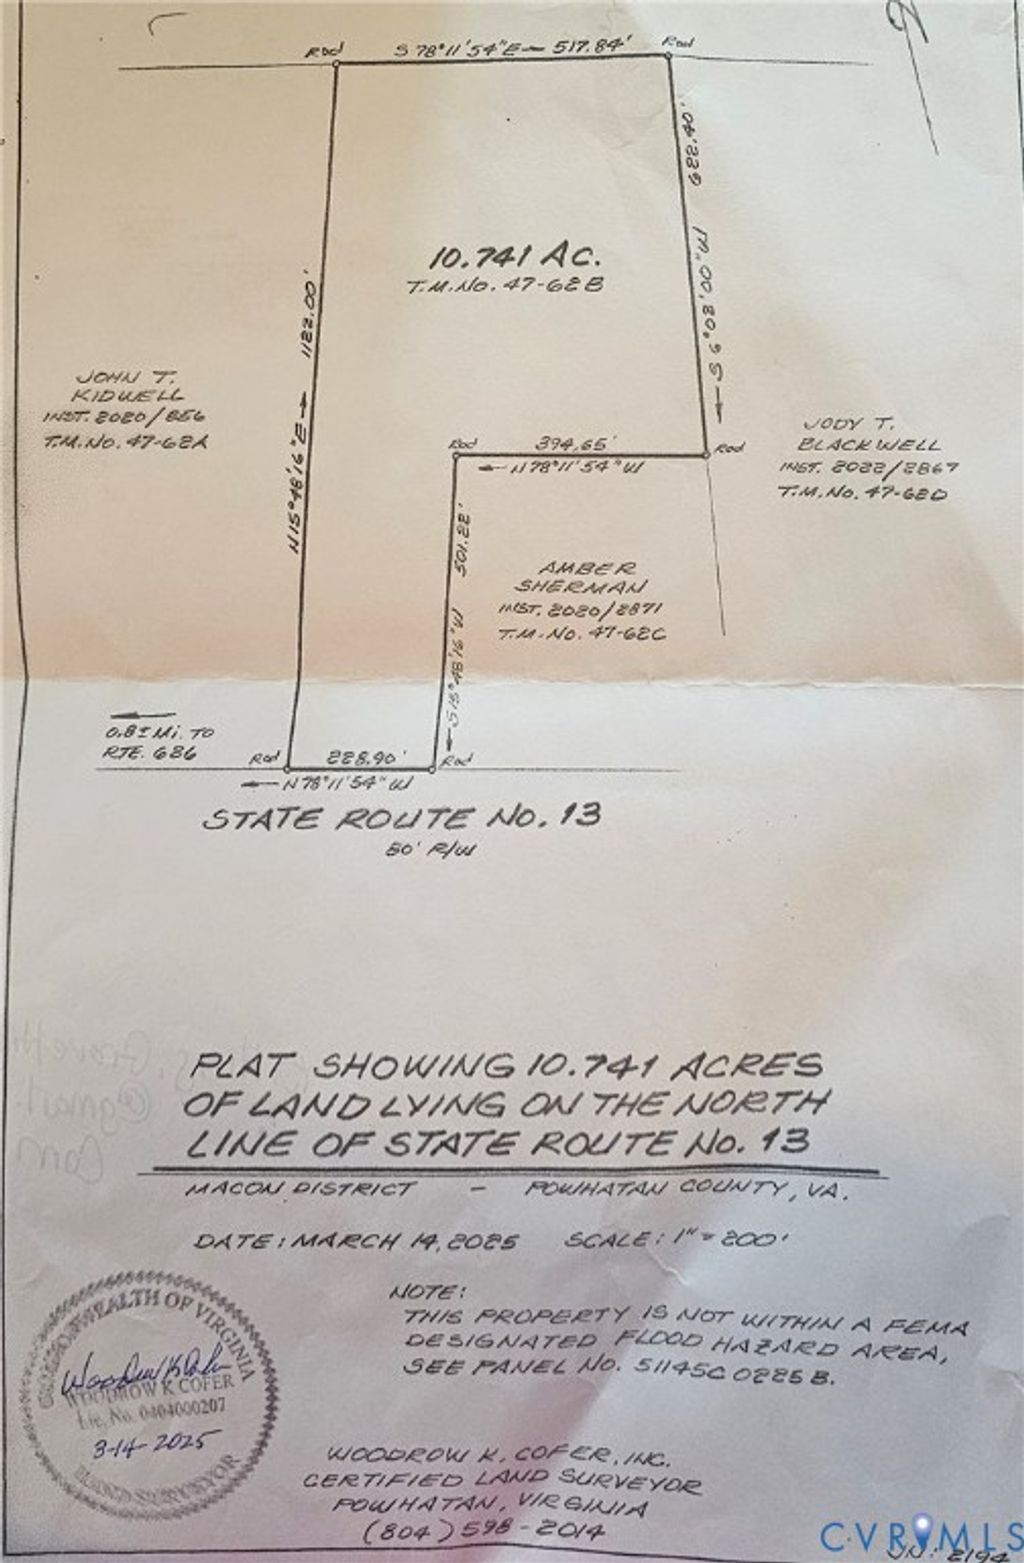 Rod S 78°11'54"E 517.84' Rod
622.40'
S 6°02'00"W
10.741 AC.
T.M.No. 47-62B
1122.00'
N15°48'16"E
JOHN T.
KIDWELL
INST. 2020/856
T.M.No. 47-62A
Rod 394.65' Rod
N78°11'54"W
JODY T.
BLACKWELL
INST. 2022/2867
T.M.No. 47-62D
501.22'
S15°48'16"W
AMBER
SHERMAN
INST. 2020/2871
T.M.No. 47-62C
0.8± Mi. TO
RTE. 686
Rod 228.90' Rod
N78°11'54"W
STATE ROUTE No. 13
50' R/W
PLAT SHOWING 10.741 ACRES
OF LAND LYING ON THE NORTH
LINE OF STATE ROUTE No. 13
MACON DISTRICT - POWHATAN COUNTY, VA.
DATE: MARCH 14, 2025 SCALE: 1" = 200'
NOTE:
THIS PROPERTY IS NOT WITHIN A FEMA
DESIGNATED FLOOD HAZARD AREA,
SEE PANEL No. 51145C0225B.
COMMONWEALTH OF VIRGINIA
Woodrow K. Cofer
WOODROW K. COFER
Lic. No. 0404000207
3-14-2025
LAND SURVEYOR
WOODROW K. COFER, INC.
CERTIFIED LAND SURVEYOR
POWHATAN, VIRGINIA
(804) 598-2014
CVRMLS
JN: 2194